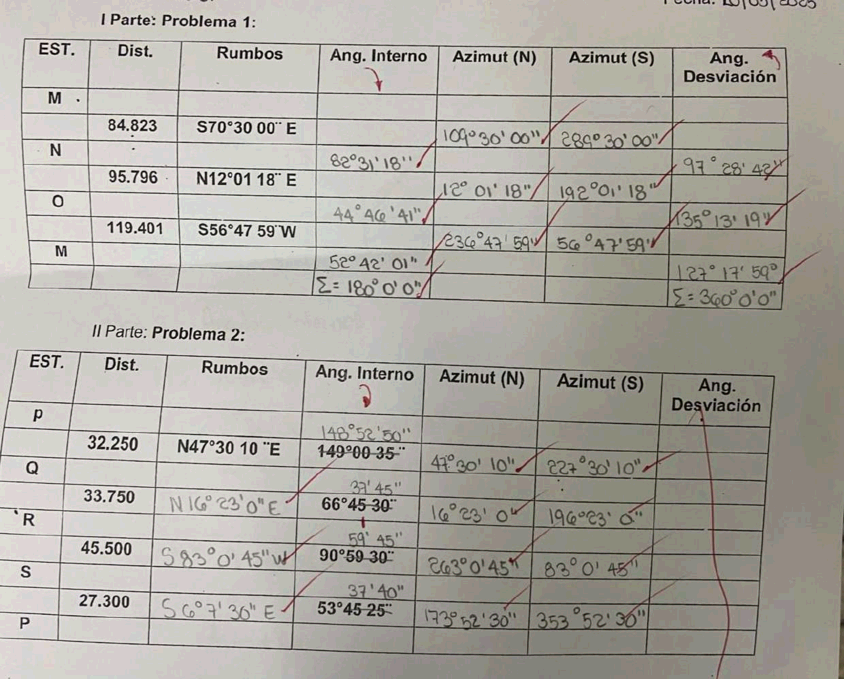 Fecha: 20/05/2025
I Parte: Problema 1:
EST. Dist. Rumbos Ang. Interno Azimut (N) Azimut (S) Ang. Desviación
M
84.823 S70°30 00¨ E 109°30'00" 289°30'00"
N 82°31'18" 97°28'42"
95.796 N12°01 18¨ E 12°01'18" 192°01'18"
O 44°46'41" 135°13'19"
119.401 S56°47 59¨W 236°47'59" 56°47'59"
M 52°42'01" 127°17'59°
Σ=180°0'0" Σ=360°0'0"
II Parte: Problema 2:
EST. Dist. Rumbos Ang. Interno Azimut (N) Azimut (S) Ang. Desviación
P 148°52'50"
32.250 N47°30 10 ¨E 149°00 35¨ 47°30'10" 227°30'10"
Q 37'45"
33.750 N16°23'0"E 66°45 30¨ 16°23'0" 196°23'0"
R 59'45"
45.500 S83°0'45"W 90°59 30¨ 263°0'45" 83°0'45"
S 37'40"
27.300 S6°7'30"E 53°45 25¨ 173°52'30" 353°52'30"
P